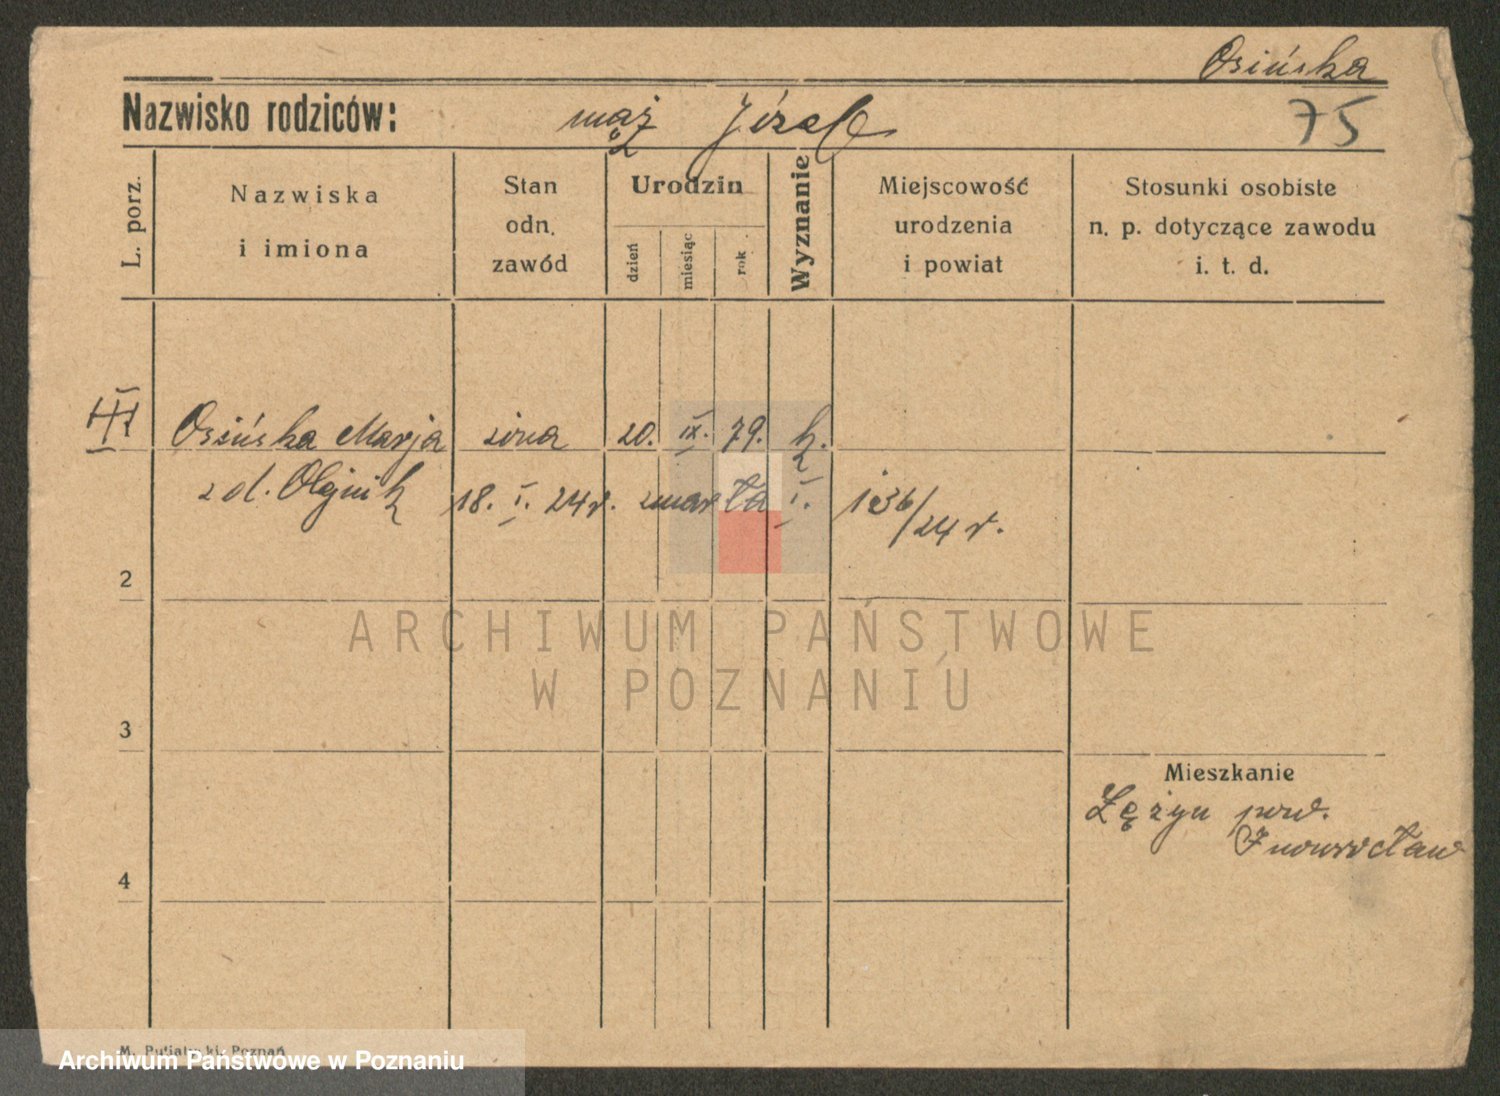 Osińska
75
Nazwisko rodziców: mąż Józef
L. porz.
Nazwiska
i imiona
Stan
odn.
zawód
Urodzin
dzień
miesiąc
rok
Wyznanie
Miejscowość
urodzenia
i powiat
Stosunki osobiste
n. p. dotyczące zawodu
i. t. d.
Osińska Marja żona 20. IX. 79. k.
z d. Olejnik 18. I. 24 r. zmarła I. 136/24 r.
2
3
4
Mieszkanie
pow.
Inowrocław
ARCHIWUM PAŃSTWOWE
W POZNANIU
M. Putiatycki, Poznań
Archiwum Państwowe w Poznaniu